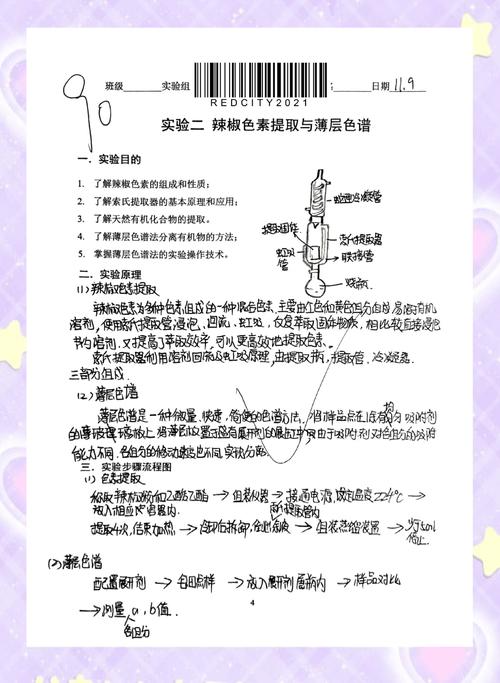 90
班级 实验组 日期 11.9
REDCITY2021
实验二 辣椒色素提取与薄层色谱
一．实验目的
1. 了解辣椒色素的组成和性质；
2. 了解索氏提取器的基本原理和应用；
3. 了解天然有机化合物的提取。
4. 了解薄层色谱法分离有机物的方法；
5. 掌握薄层色谱法的实验操作技术。
球形冷凝管
提取固体
索氏提取器
虹吸管
联接管
烧瓶
二．实验原理
(1) 辣椒色素提取
辣椒色素为多种色素组成的一种混合色素，主要由红色和黄色组分组成，易溶有机
溶剂，使用索氏提取管浸泡、回流、虹吸，反复萃取固体物质，相比较直接浸泡
节约溶剂，又提高了萃取效率，可以更高效地提取色素。
索氏提取器利用溶剂回流及虹吸原理，由提取瓶，提取管，冷凝器
三部分组成
(2) 薄层色谱
薄层色谱是一种微量、快速、简便的色谱方法，将样品点在
能力不同，各组分的移动速率也不同，实现分离。
三．实验步骤流程图
(1) 色素提取
乙酸乙酯 → 组装仪器 → 接通电源，设定温度224℃ →
放入相应 容器内
提取4次，结束加热 → → 组装蒸馏装置 →
停止
(2) 薄层色谱
配置展开剂 → 点样 → 放入展开剂 瓶内 → 样品对比
→ 测量 a, b值.
各组分
4